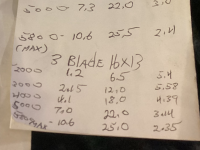 5000 7.3 22.0 3.0
5800 10.6 25.5 2.4
(MAX)
3 BLADE 16X13
2000 1.2 6.5 5.4
3000 2.15 12.0 5.58
4000 4.1 18.0 4.39
5000 7.0 22.0 3.14
5800 MAX - 10.6 25.0 2.35